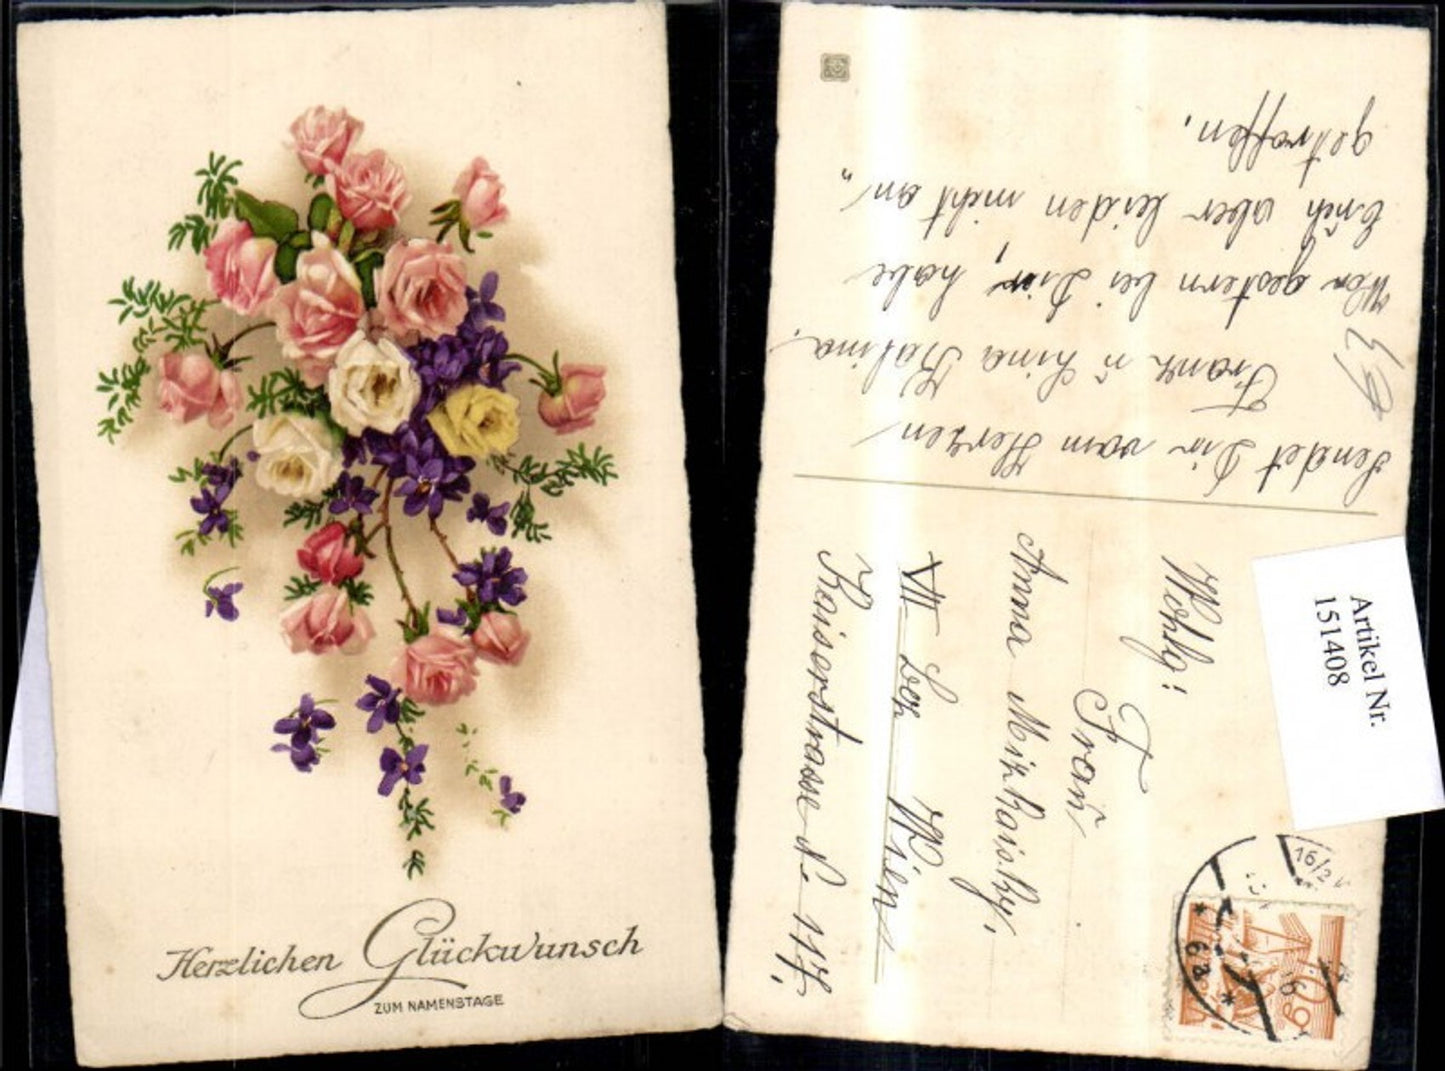 Herzlichen Glückwunsch
ZUM NAMENSTAGE
Sendet Dir vom Herzen
Franz ü Lina Kalina.
War gestern bei Dir, habe
Dich aber leider nicht an
getroffen.
Wohlg:
Frau
Anna
VII Wien
Kaiserstrasse N. 117.
Artikel Nr.
151408
16/2